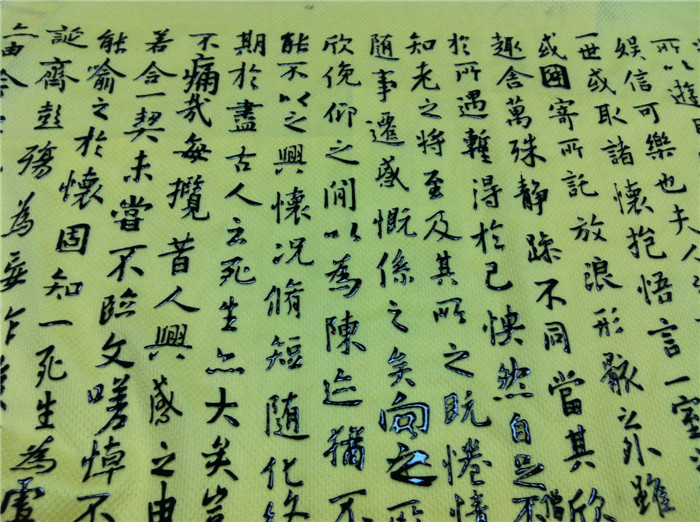 所以遊
娛信可樂也夫人
一世或取諸懷抱悟言一室
或因寄所託放浪形骸之外雖
趣舍萬殊靜躁不同當其欣
於所遇暫得於己怏然自足不
僧
知老之將至及其所之既惓情
隨事遷感慨係之矣向之所
欣俛仰之間以為陳迹猶不
能不以之興懷況脩短隨化終
期於盡古人云死生亦大矣豈
不痛哉每攬昔人興感之由
若合一契未嘗不臨文嗟悼不
能喻之於懷固知一死生為虛
誕齊彭殤為妄作後
由今